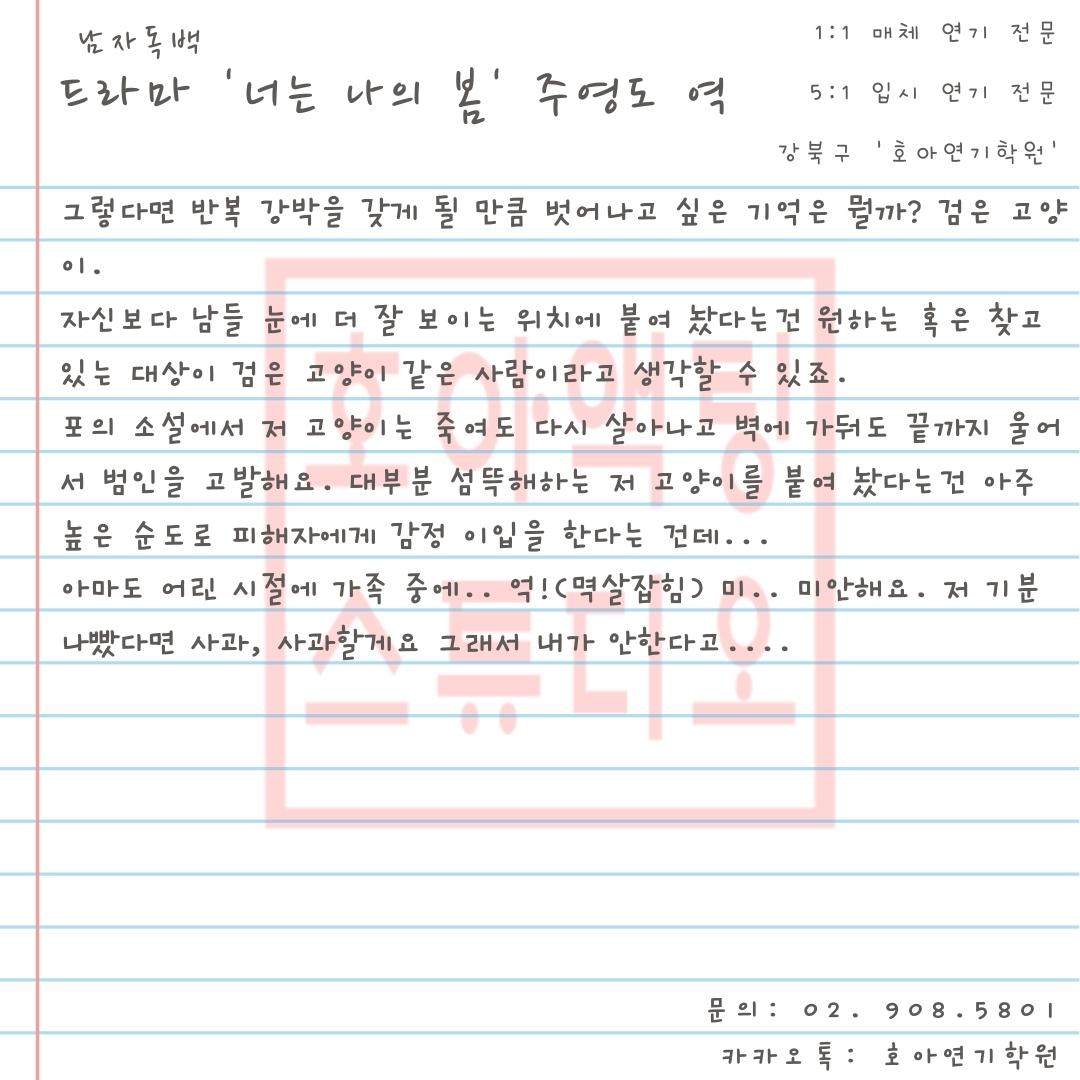 남자독백
드라마 '너는 나의 봄' 주영도 역
1:1 매체 연기 전문
5:1 입시 연기 전문
강북구 '호아연기학원'
그렇다면 반복 강박을 갖게 될 만큼 벗어나고 싶은 기억은 뭘까? 검은 고양
이.
자신보다 남들 눈에 더 잘 보이는 위치에 붙여 놨다는건 원하는 혹은 찾고
있는 대상이 검은 고양이 같은 사람이라고 생각할 수 있죠.
포의 소설에서 저 고양이는 죽여도 다시 살아나고 벽에 가둬도 끝까지 울어
서 범인을 고발해요. 대부분 섬뜩해하는 저 고양이를 붙여 놨다는건 아주
높은 순도로 피해자에게 감정 이입을 한다는 건데...
아마도 어린 시절에 가족 중에.. 억!(멱살잡힘) 미.. 미안해요. 저 기분
나빴다면 사과, 사과할게요 그래서 내가 안한다고....
호아액팅
스튜디오
문의: 02. 908.5801
카카오톡: 호아연기학원